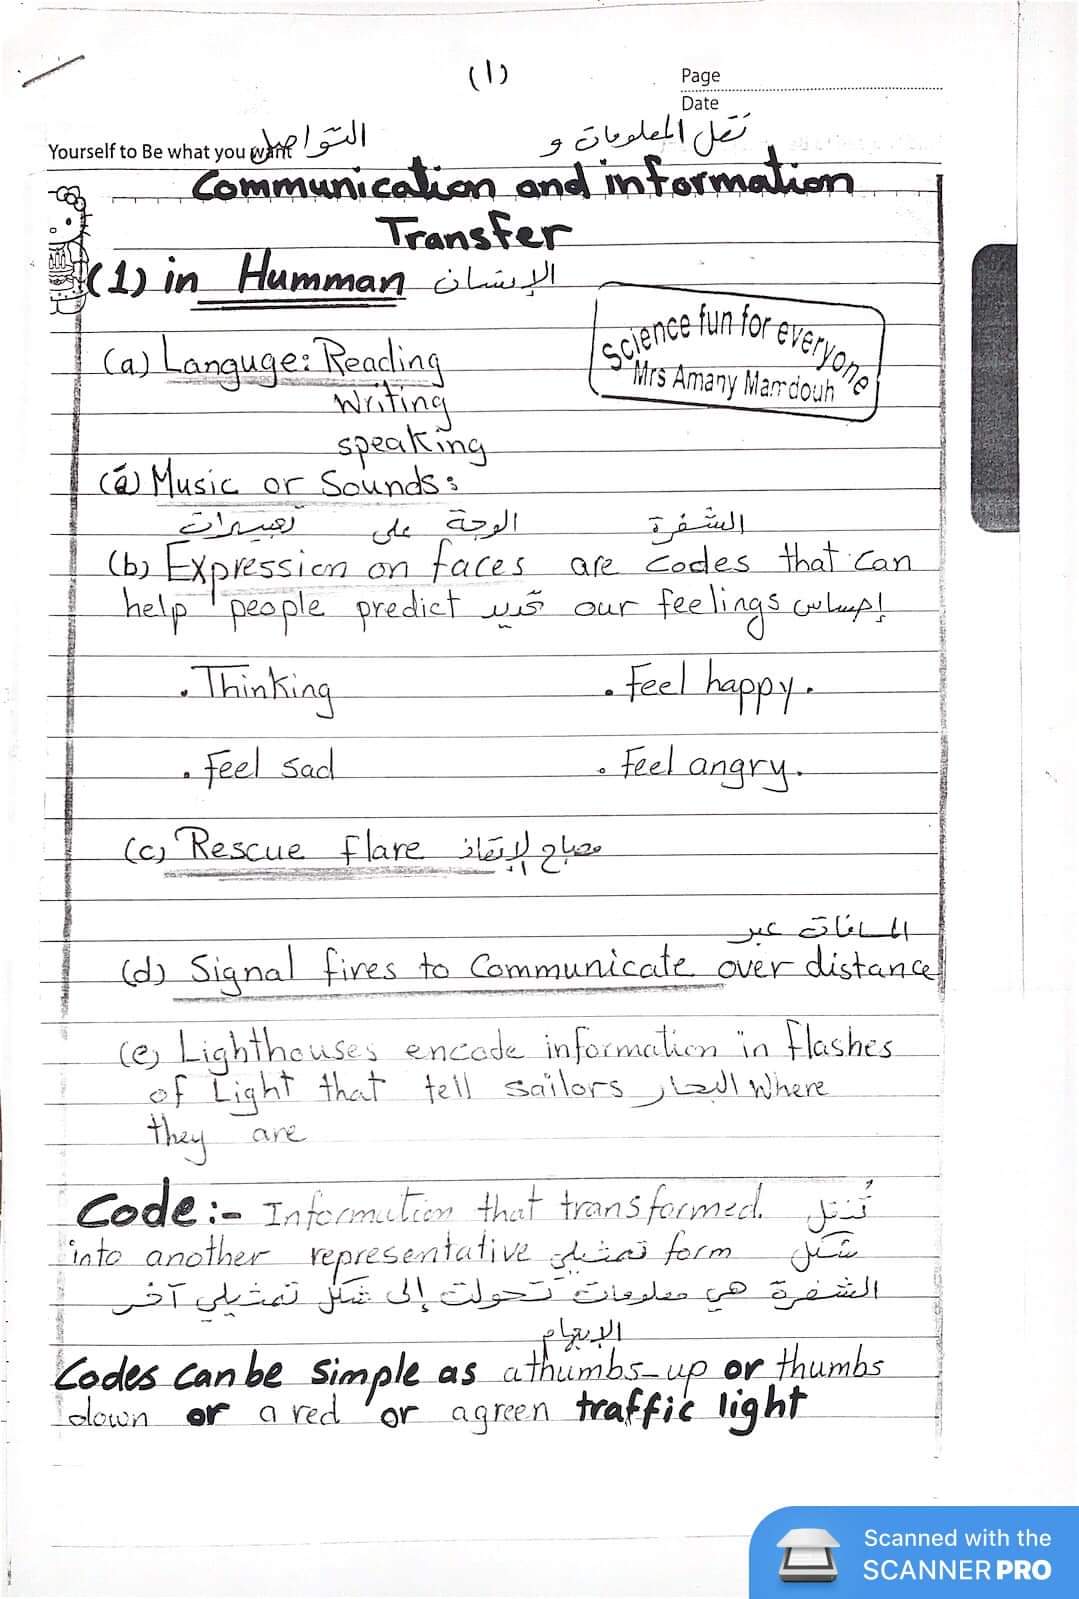 (1)
Page
Date
التواصل و نقل المعلومات
Yourself to Be what you want
Communication and information
Transfer
(1) in Humman الإنسان
Science fun for everyone
Mrs Amany Mamdouh
(a) Languge: Reading
Writing
speaking
(a) Music or Sounds:
تعبيرات على الوجة الشفرة
(b) Expression on faces are codes that can
help people predict our feelings إحساس
. Thinking . Feel happy.
. Feel sad . Feel angry.
(c) Rescue flare مصباح الإنقاذ
عبر المسافات
(d) Signal fires to Communicate over distance
(e) Lighthouses encode information in flashes
of Light that tell sailors البحار Where
they are
Code:- Information that transformed.
into another representative تمثيلي form شكل
الشفرة هي معلومات تحولت إلى شكل تمثيلي آخر
الإبهام
Codes can be Simple as a thumbs-up or thumbs
down or a red or a green traffic light
Scanned with the
SCANNER PRO